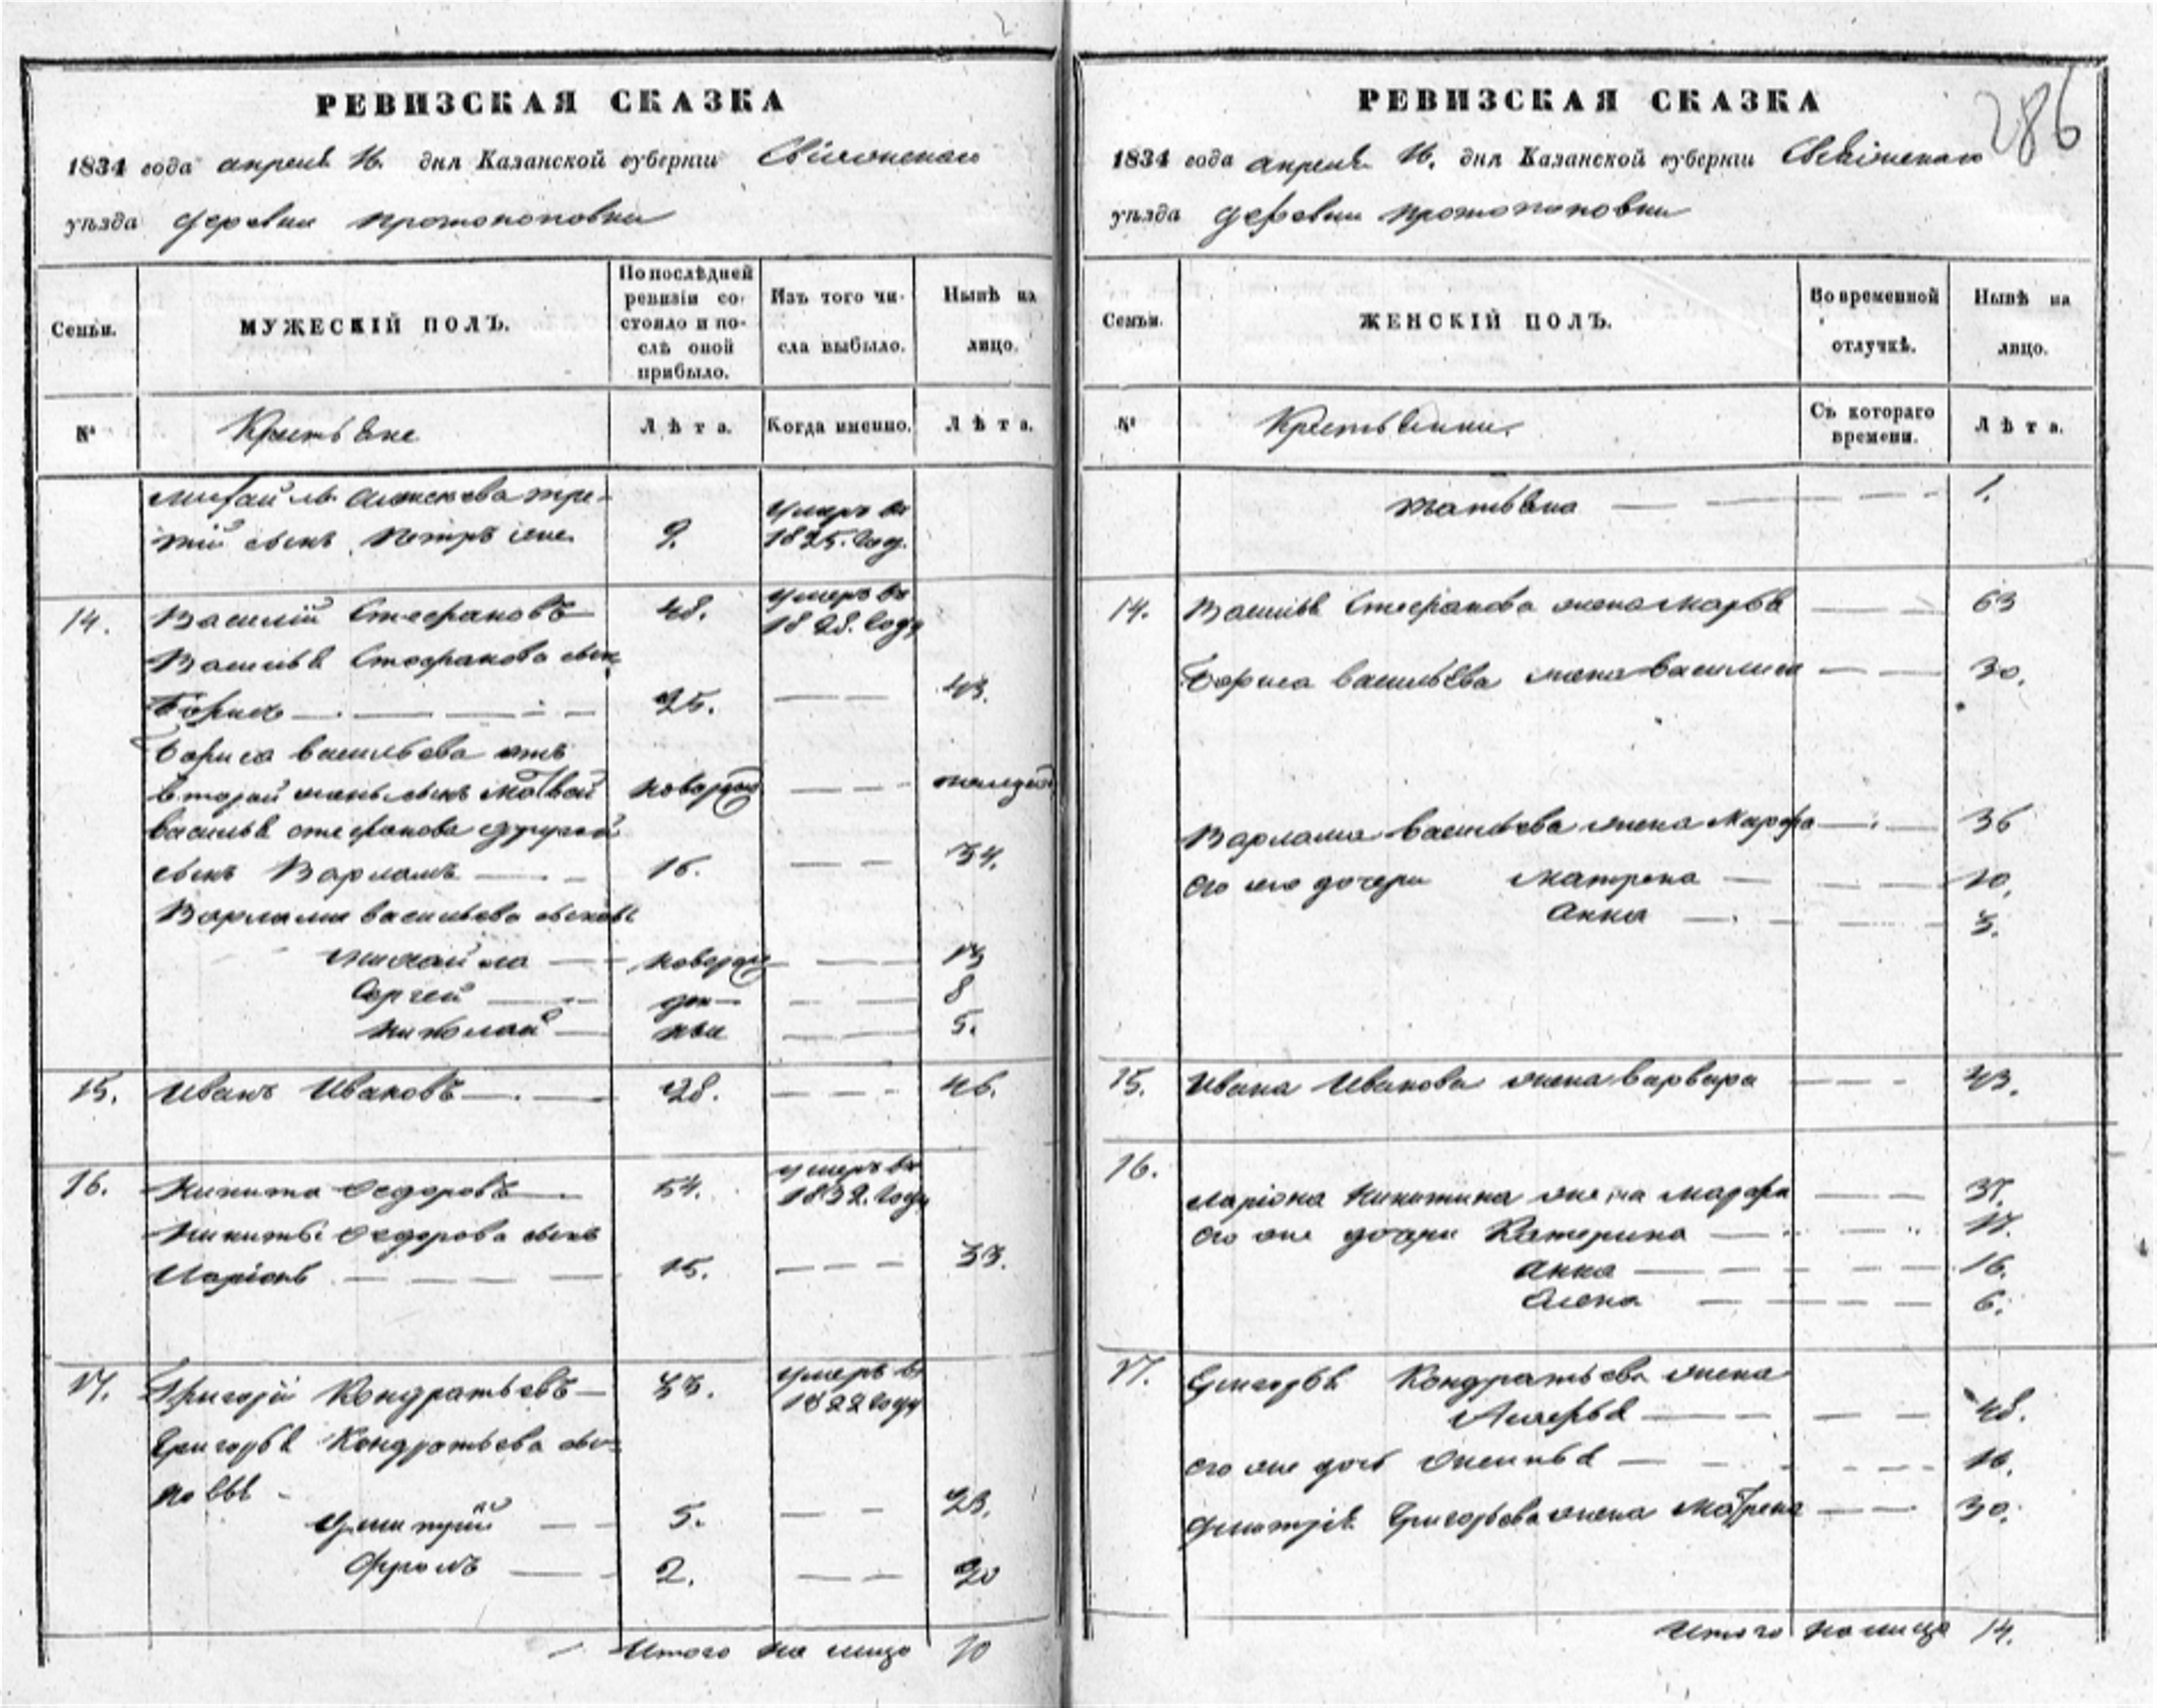 РЕВИЗСКАЯ СКАЗКА
1834 года апреля 16. дня Казанской губерніи Свіяжскаго
уѣзда деревни Протопоповки
Семьи.
МУЖЕСКІЙ ПОЛЪ.
По послѣдней
ревизіи со-
стояло и по-
слѣ оной
прибыло.
Изъ того чи-
сла выбыло.
Нынѣ на
лицо.
№
Крестьяне
Лѣта.
Когда именно.
Лѣта.
Михайлы Алексеева тре-
тій сынъ Петръ 9. умеръ въ
1825. год.
14. Василій Стефановъ 48. умеръ въ
1828. году
Василья Стефанова сын
Борисъ — 25. — 43.
Бориса Васильева отъ
второй жены сынъ Матвей новорож — полгода
Василья Стефанова другой
сынъ Варламъ — 16. — 34.
Варлама Васильева сыновья
Михайла — новорож — 13
Сергей — ден — 8
Николай — ныи — 5.
15. Иванъ Ивановъ — 28. — 46.
16. Никита Федоровъ — 54. умеръ въ
1832. году
Никиты Федорова сынъ
Ларіонъ — 15. — 33.
17. Григорій Кондратьевъ — 33. умеръ въ
1822 году
Григорья Кондратьева сы-
новья
Дмитрій — 5. — 23.
Фролъ — 2. — 20
Итого на лицо 10
286
РЕВИЗСКАЯ СКАЗКА
1834 года апреля 16. дня Казанской губерніи Свіяжскаго
уѣзда деревни Протопоповки
Семьи.
ЖЕНСКІЙ ПОЛЪ.
Во временной
отлучкѣ.
Нынѣ на
лицо.
№
Крестьянки.
Съ котораго
времени.
Лѣта.
Татьяна — 1.
14. Василья Стефанова жена Марья — 63
Бориса Васильева жена Василиса — 30.
Варлама Васильева жена Марфа — 36
его же дочери Матрена — 10.
Анна — 3.
15. Ивана Иванова жена Варвара — 43.
16.
Ларіона Никитина жена Марфа — 37.
его же дочери Катерина — 17.
Анна — 16.
Алена — 6.
17. Григорья Кондратьева жена
Лукерья — 48.
его же дочь — 16.
Дмитрія Григорьева жена Матрена — 30.
Итого на лицо 14.